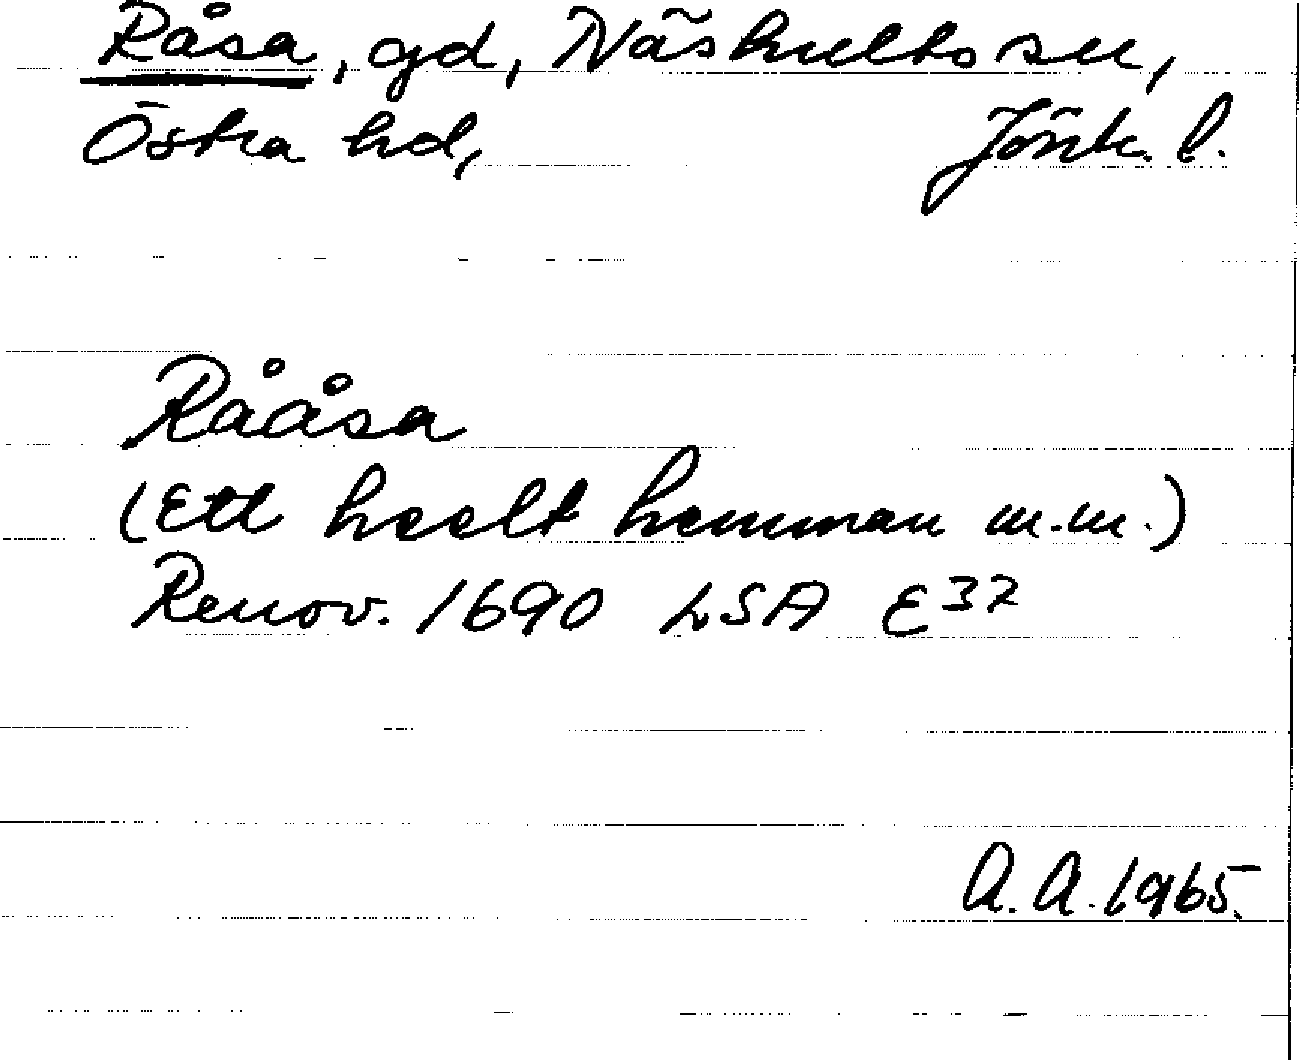 Råsa, gd, Näshults sn,
Östra hd, Jönk. l.
Rååsa
(Ett heelt hemman m.m.)
Renov. 1690 LSA E37
A. A. 1965.